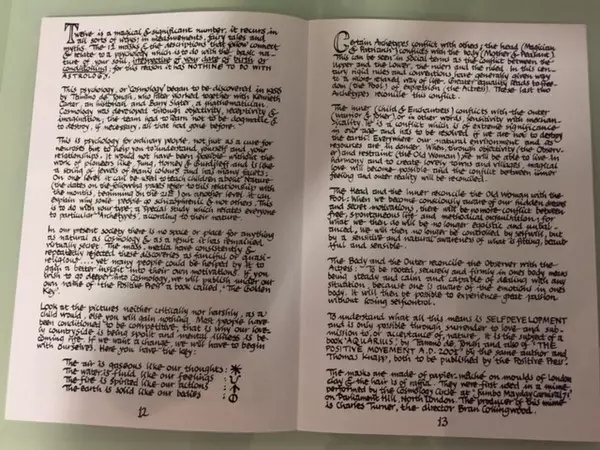 Twelve is a magical & significant number, it recurs in
all sorts of ways: in measurements, fairy tales and
myths. The 12 masks & the descriptions that follow connect
& relate to a psychology which is to do with the basic na-
ture of your soul, irrespective of your date of birth or
conditioning; for this reason it HAS NOTHING TO DO WITH
ASTROLOGY.
This psychology, or 'Cosmology' began to be discovered in 1968
by Tammo de Jongh, who later worked together with Kenneth
Carter, an historian, and Barry Slater, a mathematician.
Cosmology was developed through objectivity, receptivity &
imagination; the team had to learn not to be dogmatic &
to destroy, if necessary, all that had gone before.
This is psychology for ordinary people, not just as a cure for
neurosis but to help you to understand yourself and your
relationships. It would not have been possible without the
work of pioneers like Jung, Horney & Gurdjieff and is like
a string of jewels of many colours and has many facets.
On one level it can be used to teach children about Nature
(the dates on the following pages refer to this relationship with
the months, beginning on the 21st) on another level it can
explain why some people are schizophrenic & not others. This
is to do with your 'type', a special study which relates everyone
to particular 'Archetypes', according to their nature.
In our present society there is no space or place for anything
as natural as Cosmology & as a result it has remained
virtually secret. The mass media have consistently &
repeatedly rejected these discoveries as fanciful or quasi-
religious.... yet many people could be helped by it to
gain a better insight into their own motivations. If you
wish to go deeper into Cosmology, we will publish under our
own name of 'the Positive Press' a book called, 'The Golden
Key'.
Look at the pictures neither critically nor harshly, as a
child would, else you will gain nothing. Most people have
been conditioned to be competitive, that is why our love-
ly countryside is being spoilt and mental illness is be-
coming rife. If we want a change, we will have to begin
with ourselves. Here you have the key:
The air is gaseous like our thoughts :
The water is fluid like our feelings :
The fire is spirited like our actions :
The earth is solid like our bodies :
12
Certain Archetypes conflict with others; the head (Magician
& Patriarch) conflicts with the body (Mother & Peasant).
This can be seen in social terms as the conflict between the
upper and the lower, the rulers and the ruled. In this cen-
tury rigid rules and convictions have generally given way
to a more relaxed way of life. Greater equality leads to free-
dom (the Fool) & expression (the Actress). These last two
Archetypes reconcile this conflict.
The inner (Child & Enchantress) conflicts with the outer
(Warrior & Joker) or in other words, sensitivity with mechan-
icality. It is a conflict which is of extreme significance
in our age and has to be resolved if we are not to destroy
the Earth. Everymore our natural environment and its
resources are in danger. When, through objectivity (the Observ-
er) and restraint (the Old Woman) we will be able to live in
harmony and to create lovely towns and villages, magical
love will become possible and the conflict between inner
feeling and outer reality will be reconciled.
The Head and the Inner reconcile the Old Woman with the
Fool: When we become consciously aware of our hidden desires
and secret motivations, there will be no more conflict between
free, spontaneous life and methodical organisation; for
what we then do will be no longer egoistic and unbal-
anced, we will then no longer be controlled by selfwill, but
by a sensible and natural awareness of what is fitting, beaut-
iful and sensible.
The Body and the Outer reconcile the Observer with the
Actress: To be rooted, securely and firmly in ones body means
being steady and calm and capable of dealing with any
situation, because one is aware of the emotions in ones
body. It will then be possible to experience great passion
without losing selfcontrol.
To understand what all this means is SELFDEVELOPMENT
and is only possible through surrender to love and sub-
mission to, or acceptance of, nature. It is the subject of a
book 'AQUARIUS', by Tammo de Jongh and also of 'THE
POSITIVE MOVEMENT A.D. 2002' by the same author and
Thomas Knapp, both to be published by the Positive Press.
The masks are made of papier-mâché on moulds of London
clay & the hair is of raffia. They were first used in a mime
performed by the Cosmology Circle at 'Jumbo Mayday Carnival 71'
on Parliament Hill, North London. The producer of this mime
is Charles Turner, the director Bran Collingwood.
13